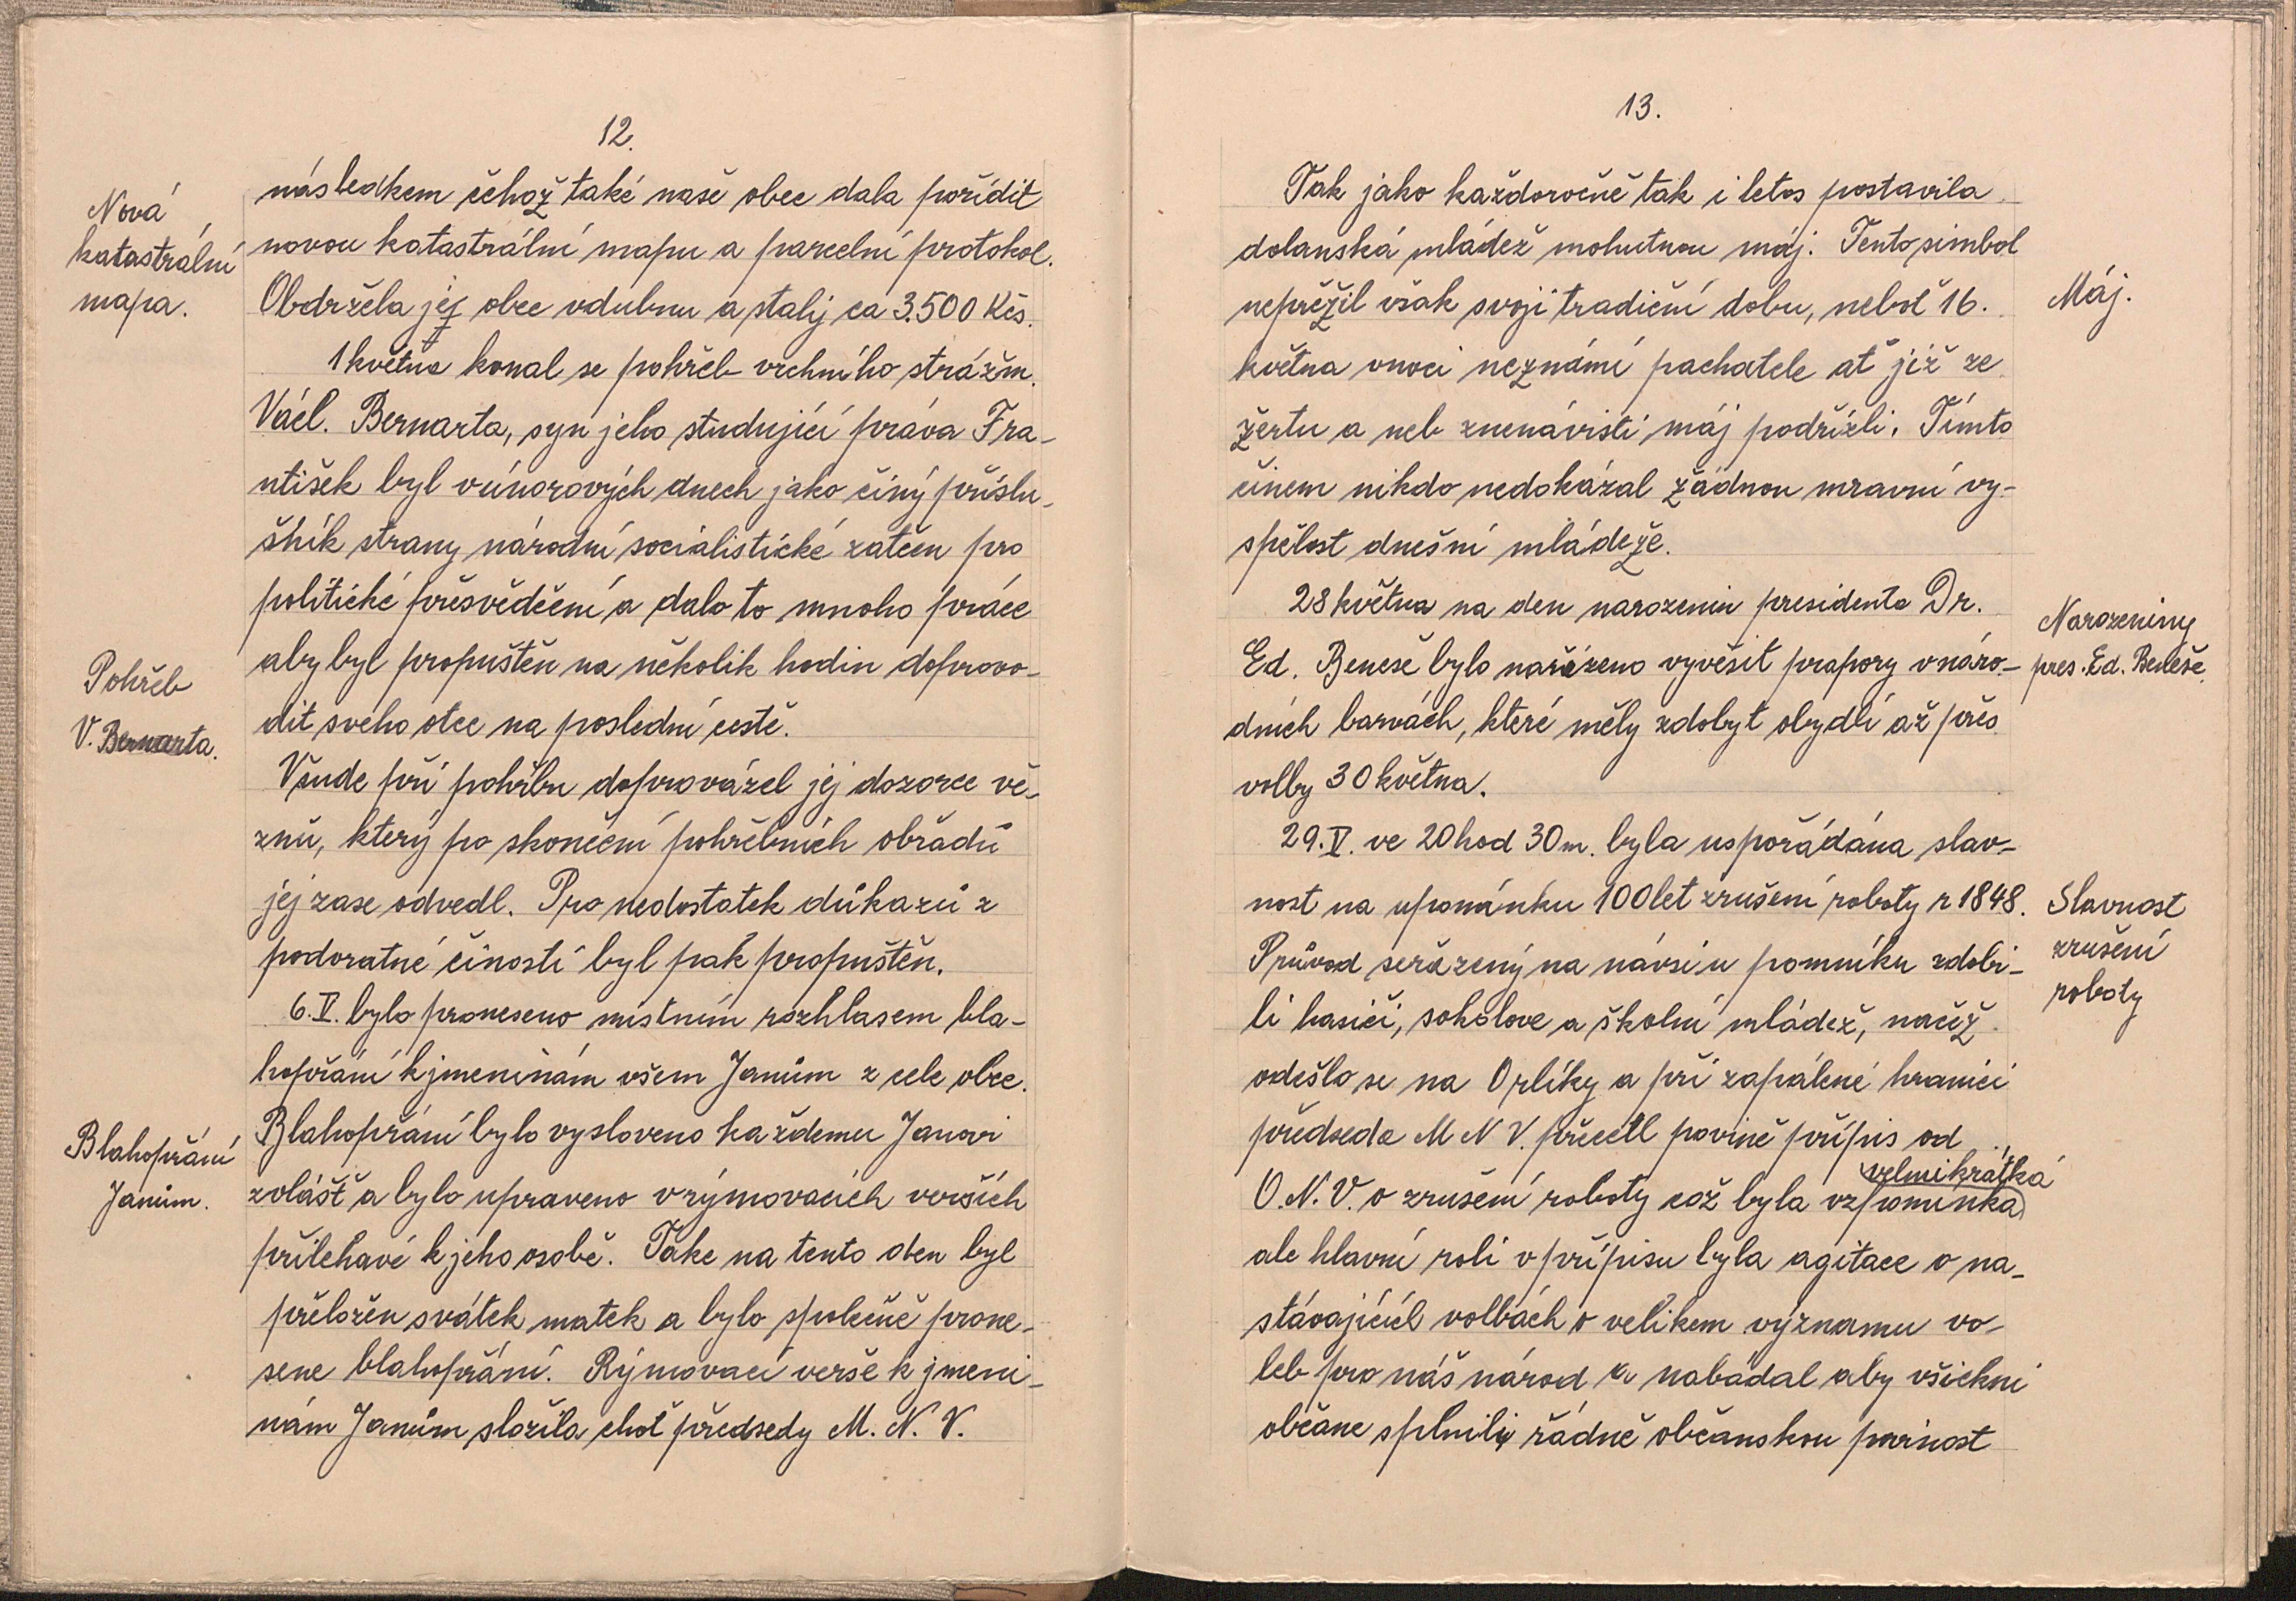 12.
Nová
katastrální
mapa.
následkem čehož také naše obec dala pořídit
novou katastrální mapu a parcelní protokol.
Obdržela jej obec vdubnu a stalj ca 3.500 Kčs.
1května konal se pohřeb vrchního strážm.
Václ. Bernarta, syn jeho studující práva Fra-
ntišek byl vúnorových dnech jako činý příslu-
šník strany národní socialistické zatčen pro
politické přesvědčení a dalo to mnoho práce
aby byl propuštěn na několik hodin doprovo-
dit svého otce na poslední cestě.
Pohřeb
V. Bernarta.
Všude při pohřbu doprovázel jej dozorce vě-
znů, který po skončení pohřebních obřadů
jej zase odvedl. Pro nedostatek důkazů z
podvratné činosti byl pak propuštěn.
6.V. bylo proneseno místním rozhlasem bla-
hopřání k jmeninám všem Janům z cele obce.
Blahopřání bylo vysloveno každemu Janovi
zvlášť a bylo upraveno v rýmovacích verších
přilehavé k jeho osobě. Take na tento den byl
přeložen svátek matek a bylo společně prone-
sene blahopřání. Rýmovací verše k jmeni-
nám Janům složila choť předsedy M. N. V.
Blahopřání
Janům.
13.
Tak jako každoročně tak i letos postavila
dolanská mládež mohutnou máj. Tento simbol
nepřežil však svoji tradiční dobu, neboť 16.
května vnoci neznámí pachatele ať již ze
žertu a neb znenávisti máj podřízli. Tímto
činem nikdo nedokázal žádnou mravní vy-
spělost dnešní mládeže.
Máj.
28května na den narozenin presidenta Dr.
Ed. Beneše bylo nařízeno vyvěsit prapory vnáro-
dních barvách, které měly zdobyt obydlí až přes
volby 30května.
Narozeniny
pres. Ed. Beneše.
29.V. ve 20hod 30m. byla uspořádána slav-
nost na upomínku 100let zrušení roboty r 1848.
Průvod seřazený na návsi u pomníku zdobi-
li hasiči, sokolove a školní mládež, načež
odešlo se na Orlíky a při zapálené hranici
předseda M N V. přečetl povině přípis od
O. N. V. o zrušení roboty což byla velmi krátká vzpomínka
ale hlavní roli v přípisu byla agitace o na-
stávajících volbách o velikem významu vo-
leb pro náš národ a nabádal aby všichni
občane splnili řádně občanskou povinost
Slavnost
zrušení
roboty